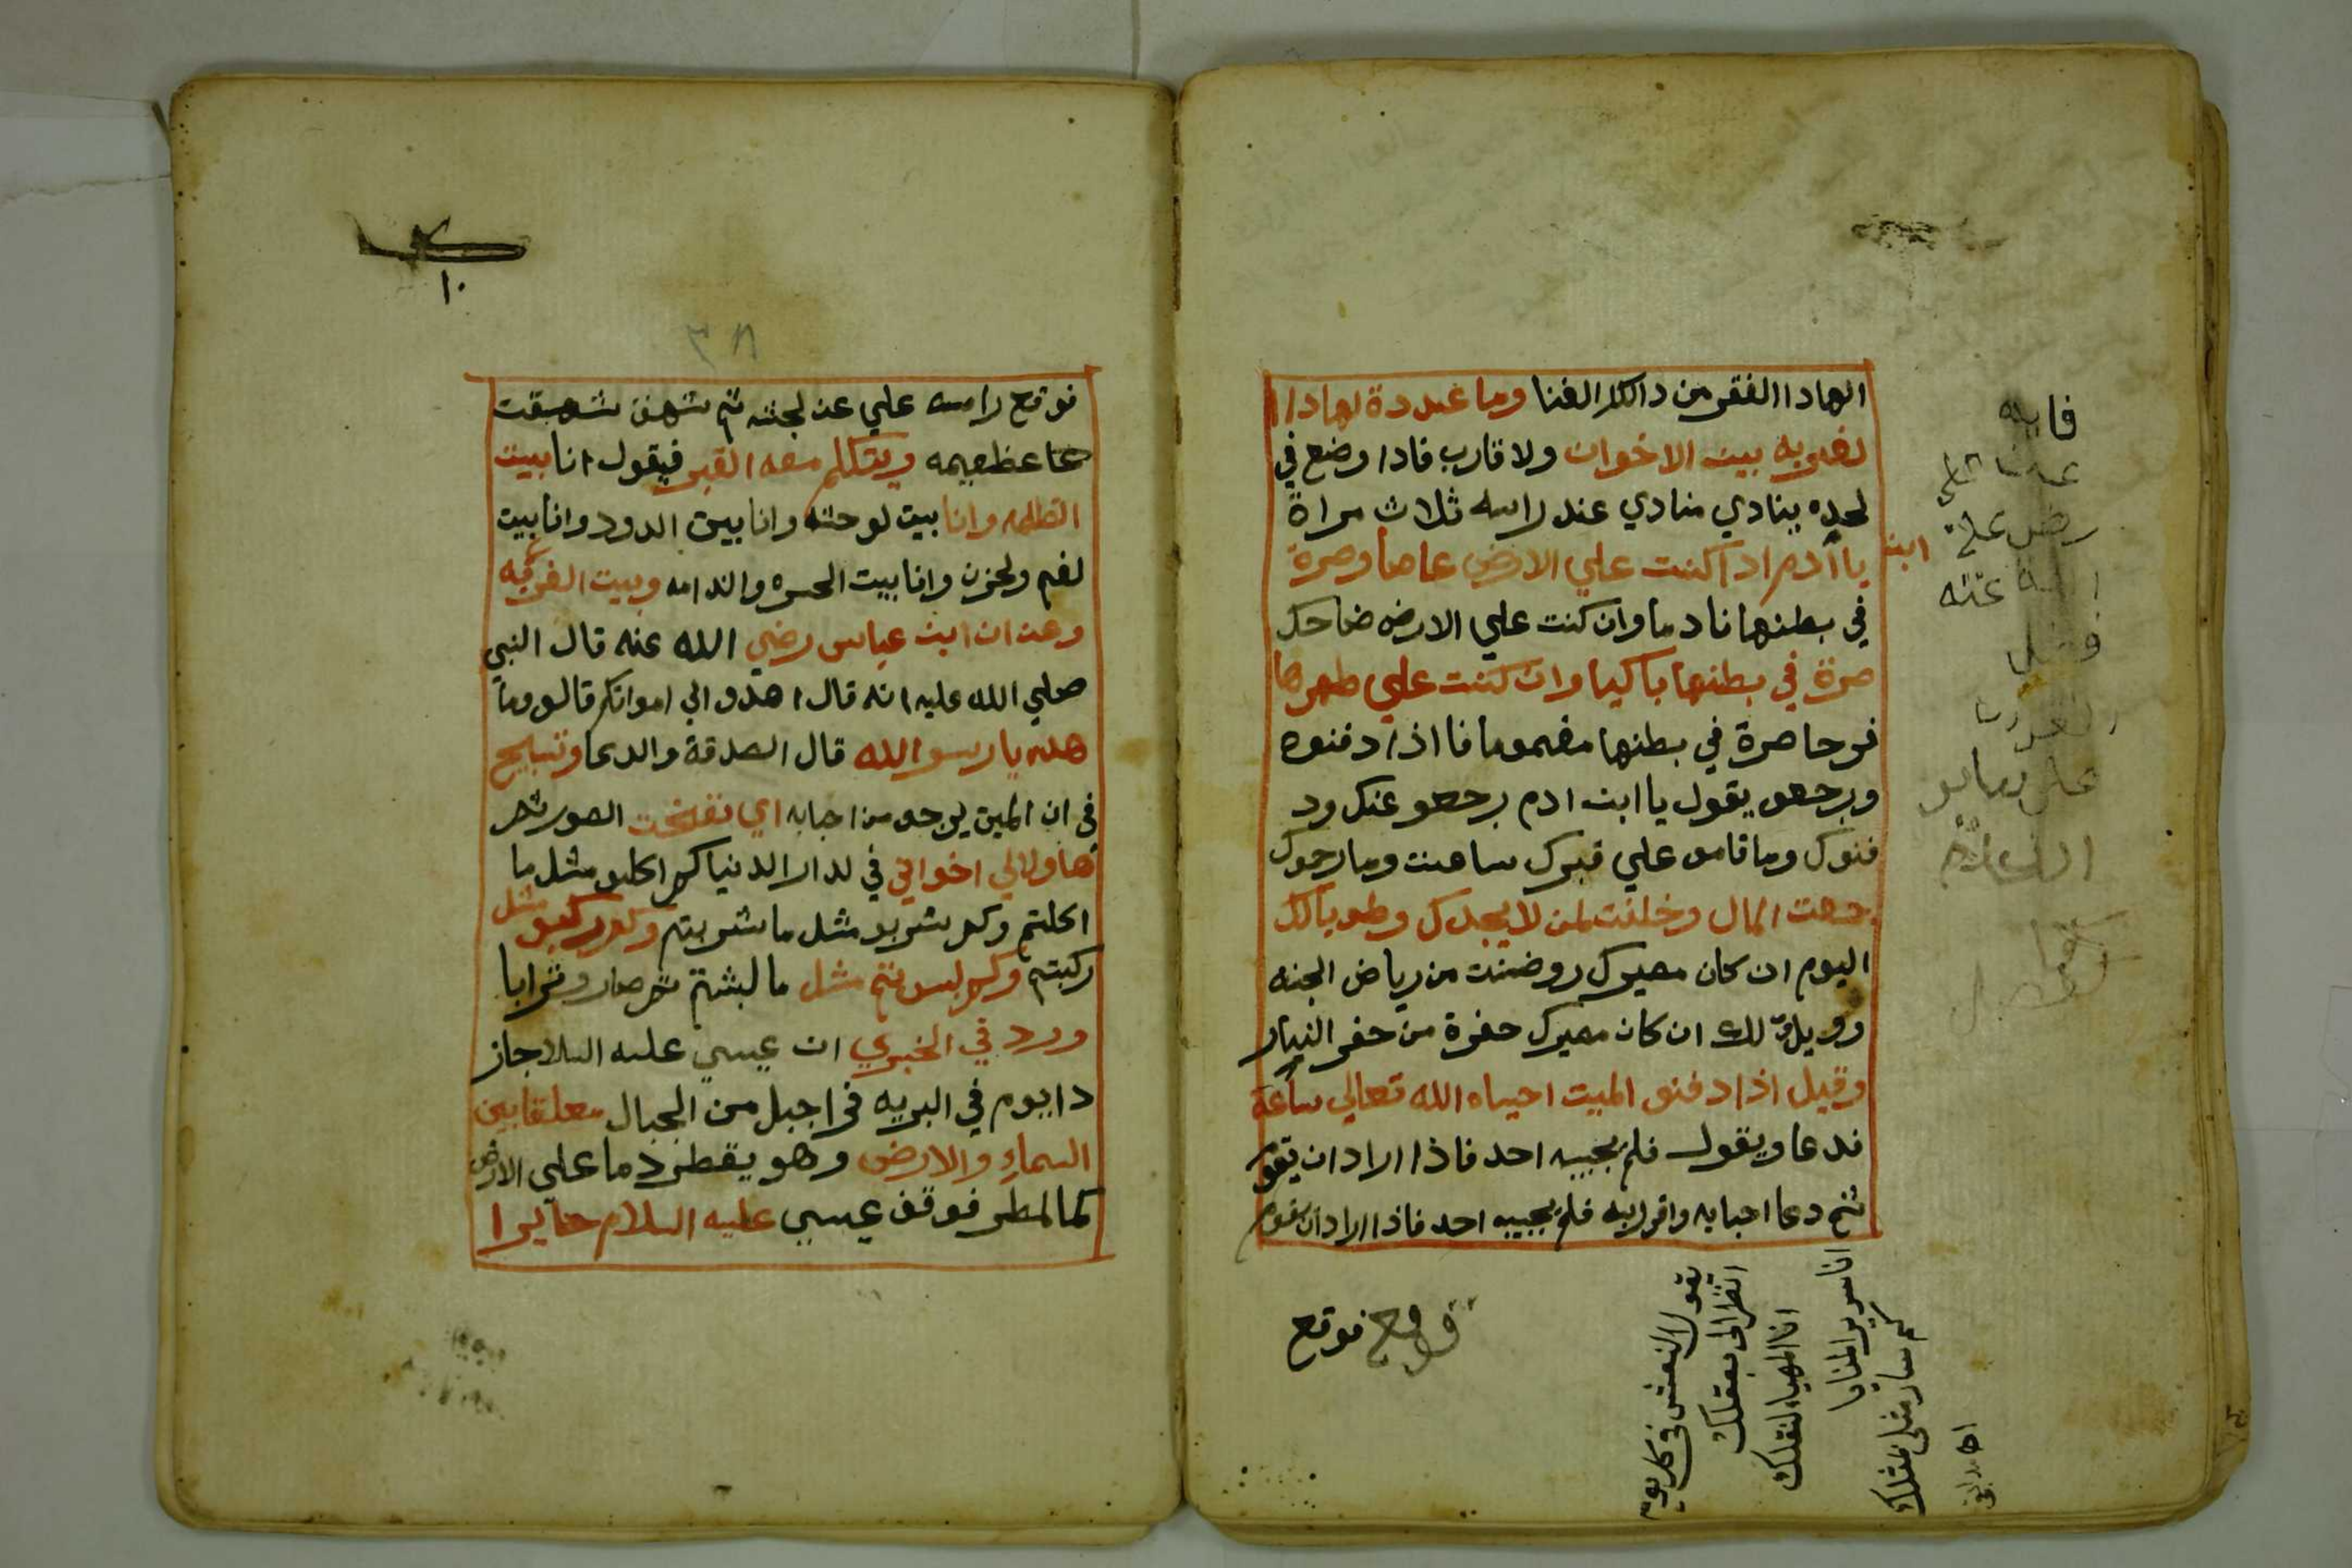 الهادا الفقر من دالك الغنا وما عددة لهادا ا
لغربه بيت الاخوان ولا قارب فادا وضع في
لحده ينادي منادي عند راسه ثلاث مراة
يا ابن ادم ادا كنت علي الارض عاصا وصرة
في بطنها نادما وان كنت علي الارض ضاحك
صرة في بطنها باكيا وان كنت علي طهرها
فرحا صرة في بطنها مغموما فا اذا دفنوه
ويرجعو يقول يا ابن ادم رجعو عنك ود
فنوك وما قامو علي قبرك ساعت وما رحوك
جمعت المال وخلفت لمن لا يجدك وطوبا لك
اليوم ان كان مصيرك روضت من رياض الجنه
وويل لك ان كان مصيرك حفرة من حفر النيار
وقيل اذا دفنو الميت احياه الله تعالي ساعة
فدعا ويقول فلم يجبيه احد فاذا اراد ان يقو
ثم دعا احبابه واقرابه فلم يجبيه احد فاذا اراد ان يقوم
فوقع فوقع
فايده
رضي
عنه
على
يقول النعش في كل يوم
انظر الي بعقلك
انا المهيا لنقلك
انا سرير المنايا
كم سار مثلي بمثلك
١٠
٣٨
فوقع راسه علي عند لجنته ثم شهق شهقت
حا عظيمه ويتكلم معه القبر فيقول انا بيت
الظلمه وانا بيت لوحشه وانا بيت الدود وانا بيت
لغم ولحزن وانا بيت الحسره والندامه وبيت الغربه
وعن ان ابن عباس رضي الله عنه قال النبي
صلي الله عليه انه قال اهدو الي امواتكم قالو وما
هديه يا رسو الله قال الصدقة والدعا وتسبيح
في ان الميت يرجو من احبابه اي نفخت الصور ثم
هاولاي اخواني في لدار الدنيا كم اكلو مثل ما
اكلتم وكم شربو مثل ما شربتم وكم ركبو مثل
ركبتم وكم لبس تم مثل ما لبشتم ثم صارو ترابا
ورد في الخبري ان عيسي عليه السلا جاز
دا يوم في البريه فرا جبل من الجبال معلقا بين
السماء والارض وهو يقطر دما علي الارض
كمالمطر فوقف عيسي عليه السلام حايرا